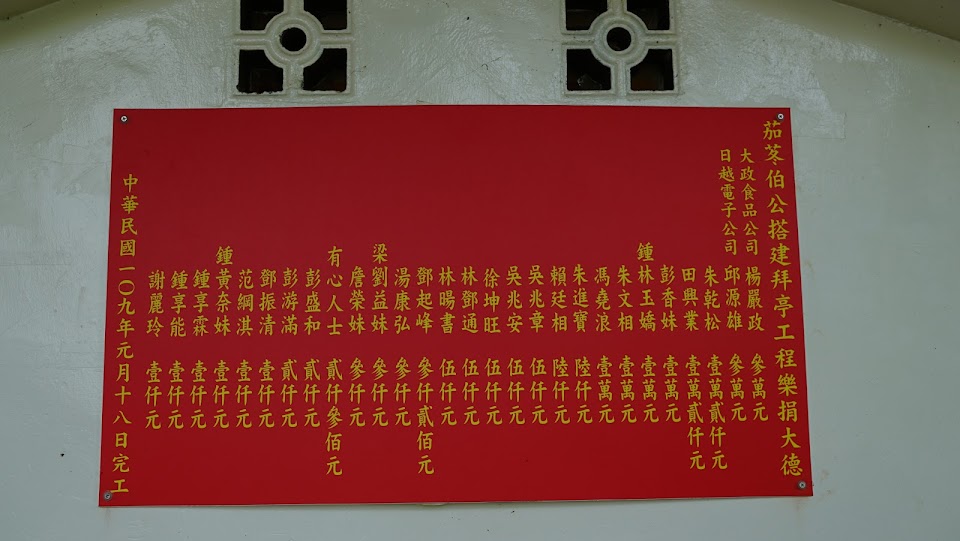 茄苳伯公搭建拜亭工程樂捐大德
大政食品公司 楊嚴政 參萬元
日越電子公司 邱源雄 參萬元
朱乾松 壹萬貳仟元
田興業 壹萬貳仟元
彭香妹 壹萬元
鍾林玉嬌 壹萬元
朱文相 壹萬元
馮堯浪 壹萬元
朱進寶 陸仟元
賴廷相 陸仟元
吳兆章 伍仟元
吳兆安 伍仟元
徐坤旺 伍仟元
林鄧通 伍仟元
林暘書 伍仟元
鄧起峰 參仟貳佰元
湯康弘 參仟元
梁劉益妹 參仟元
詹榮妹 參仟元
有心人士 貳仟參佰元
彭盛和 貳仟元
彭游滿 貳仟元
鄧振清 壹仟元
范綱淇 壹仟元
鍾黃奈妹 壹仟元
鍾享霖 壹仟元
鍾享能 壹仟元
謝麗玲 壹仟元
中華民國一〇九年元月十八日完工